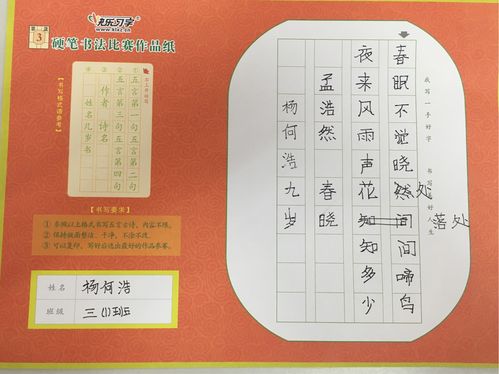 快乐习字
www.klxz.cn
硬笔书法比赛作品纸
【书写格式请参考】
五言第一句五言第二句
五言第三句五言第四句
作者 诗名
姓名几岁书
【书写要求】
① 参照以上格式书写五言古诗，内容不限。
② 保持版面整洁、干净，不涂不改。
③ 可以复印，写好后选出最好的作品参赛。
姓名 杨何浩
班级 三(1)班
我写一手好字 书写美好人生
春眠不觉晓处间间啼鸟
落处
夜来风雨声花知知多少
孟浩然 春晓
杨何浩九岁